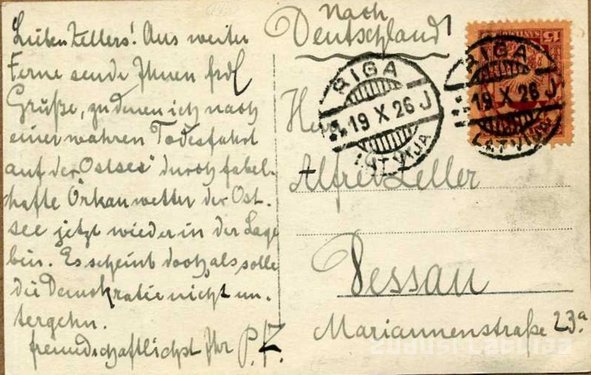 Lieben Zellers! Aus weiter
Ferne sende Ihnen frdl
Grüße, zu denen ich nach
einer wahren Todesfahrt
auf der Ostsee durch fabel-
hafte Orkanwetter der Ost-
see jetzt wieder in der Lage
bin. Es scheint doch als solle
die Demokratie nicht un-
tergehn.
freundschaftlichst Ihr P.Z.
Nach
Deutschland
RIGA
19 X 26 J
LATVIJA
RIGA
19 X 26 J
LATVIJA
15
Alfred Zeller
Dessau
Mariannenstraße 23a